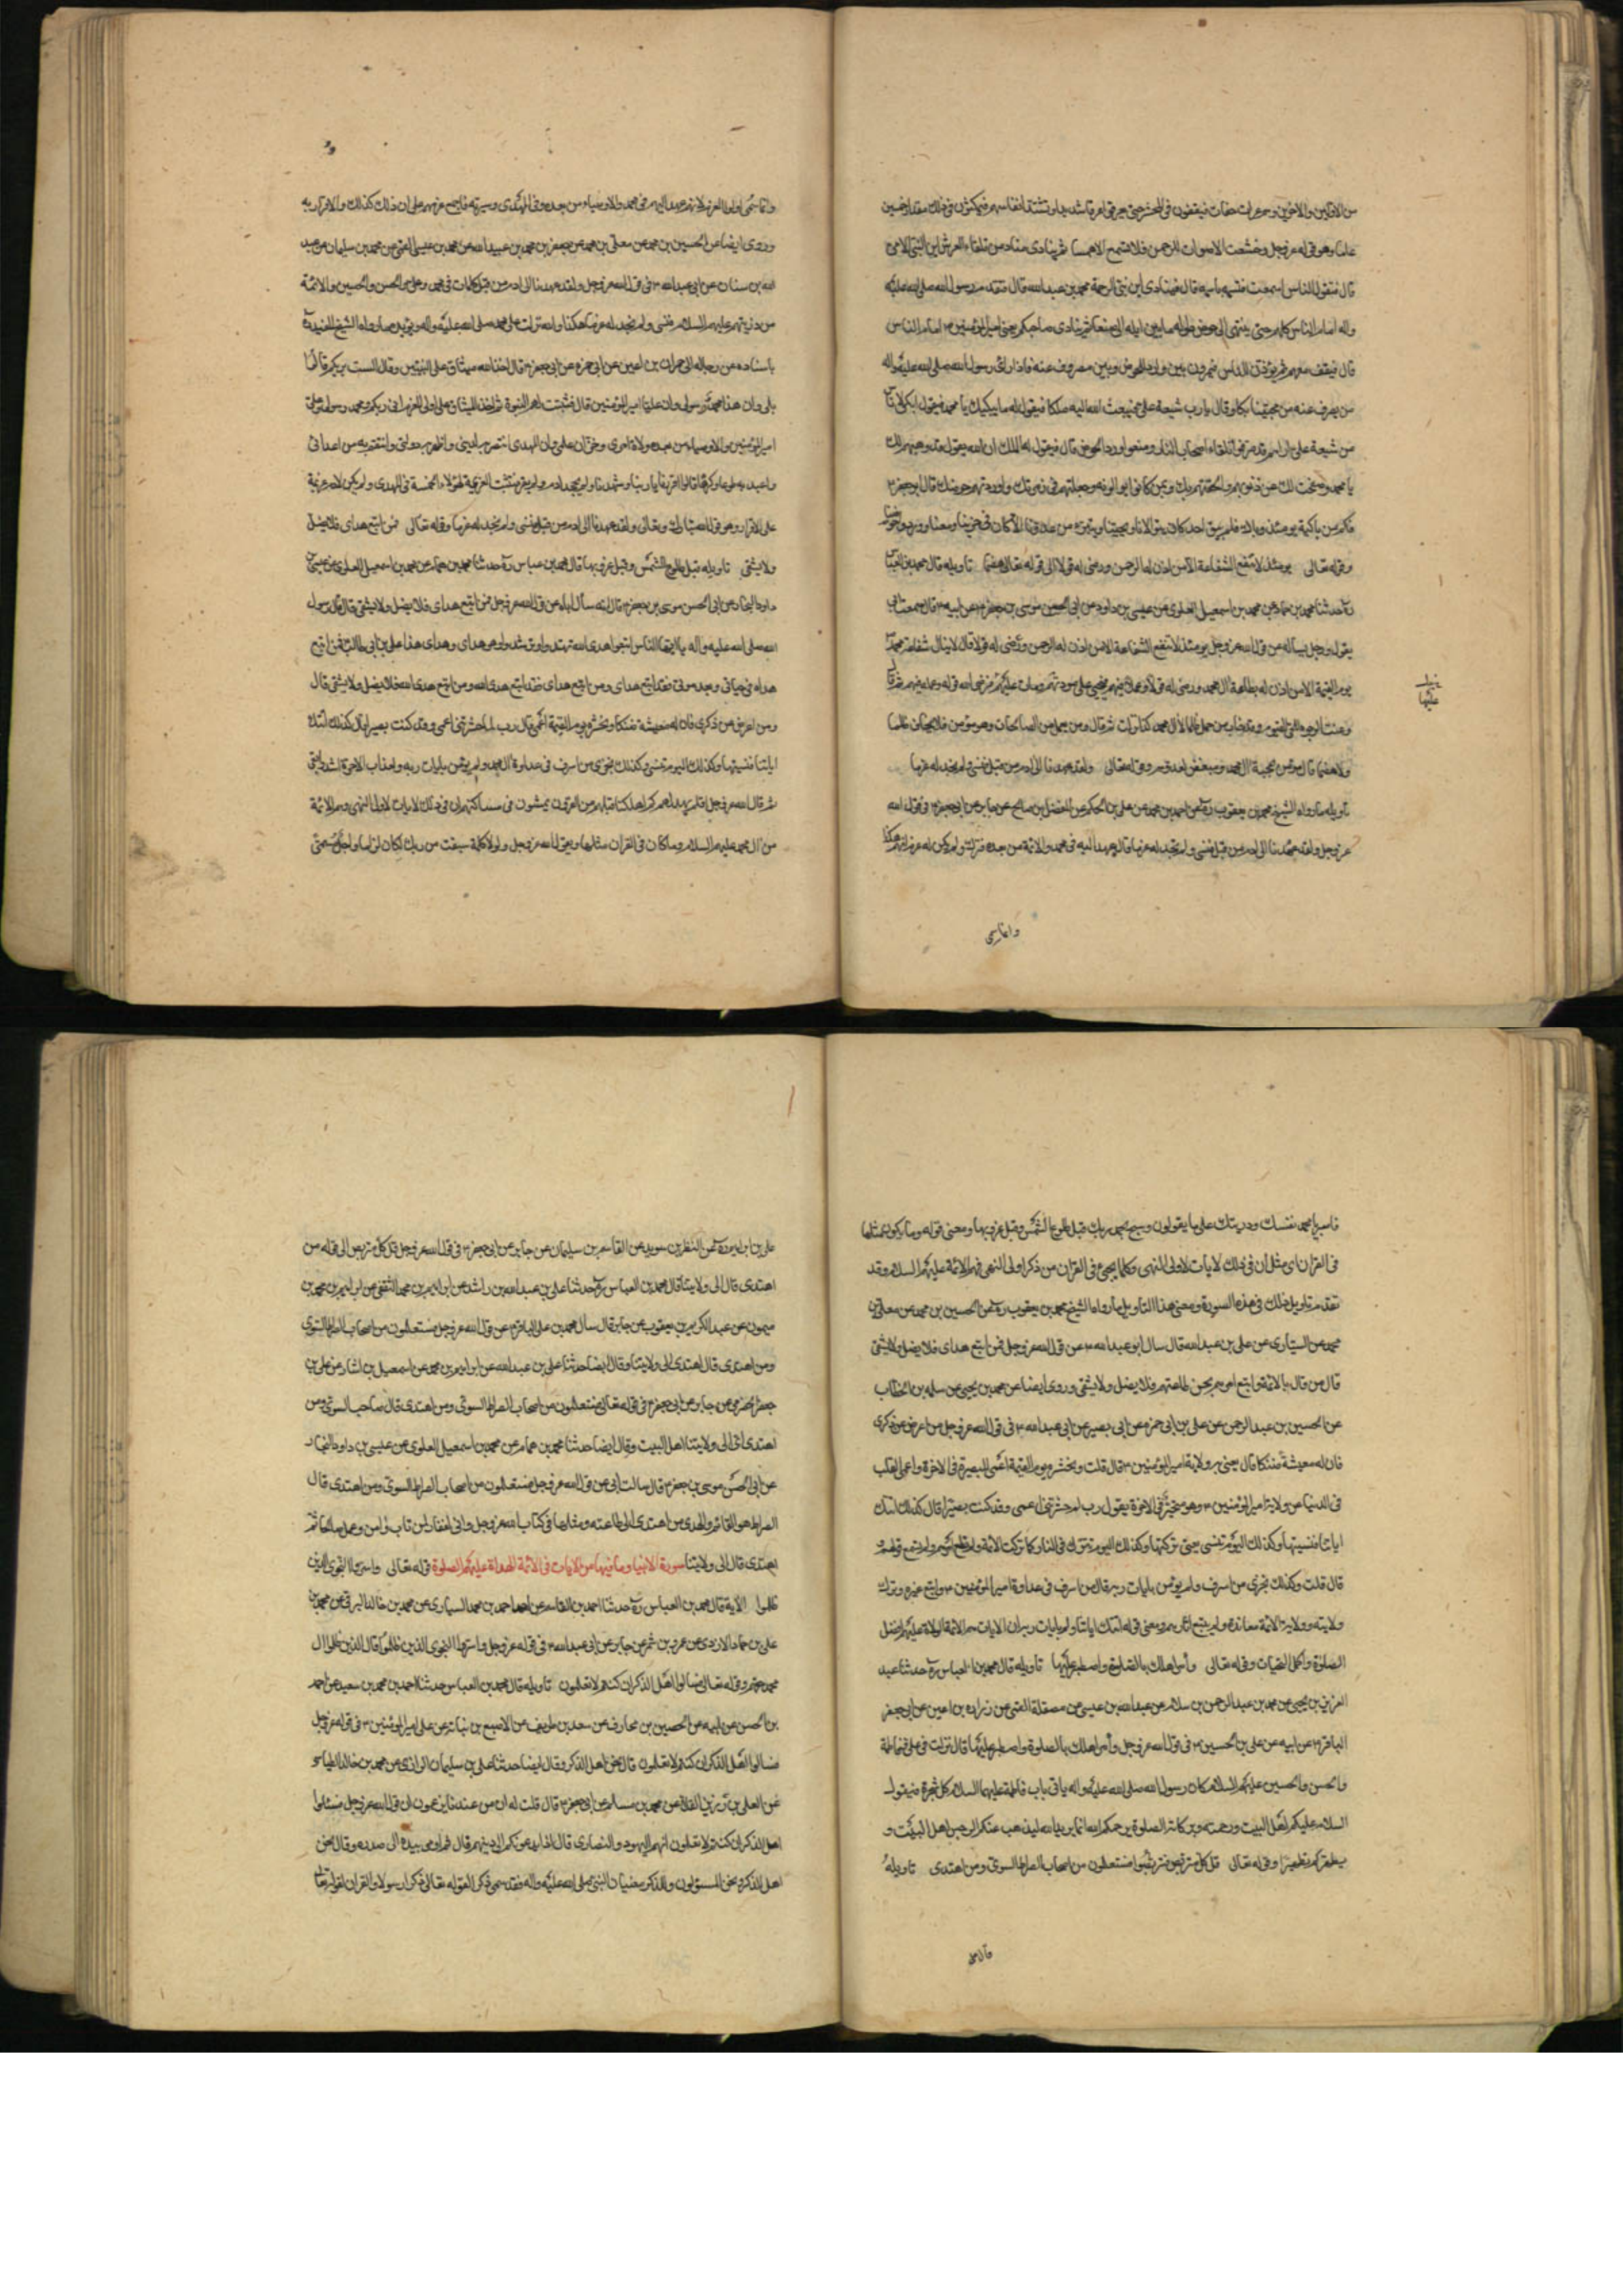 من الاولين والاخرين وهم عراة حفاة فيقفون في المحشر حتى يعرقوا عرقا شديدا وتشتد انفاسهم فيمكثون في ذلك مقدار خمسين
عاما وهو قوله عز وجل وخشعت الاصوات للرحمن فلا تسمع الا همسا ثم ينادي مناد من تلقاء العرش اين النبي الامي
قال فيقول الناس اسمعت فسمه باسمه قال فينادي اين نبي الرحمة محمد بن عبد الله قال فيتقدم رسول الله صلى الله عليه
واله امام الناس كلهم حتى ينتهي الى حوض طوله ما بين ايلة الى صنعا ثم ينادي صاحبكم يعني امير المؤمنين ع امام الناس
قال فيقف معهم ثم يؤذن للناس فيمرون فبين وارد الحوض وبين مصروف عنه فاذا راى رسول الله صلى الله عليه واله
من يصرف عنه من محبينا بكا وقال يا رب شيعة علي فيبعث الله اليه ملكا فيقول له ما يبكيك يا محمد فيقول ابكي لاناس
من شيعة علي اراهم قد صرفوا تلقاء اصحاب النار ومنعوا ورد الحوض قال فيقول له الملك ان الله يقول قد وهبتهم لك
يا محمد وصفحت لك عن ذنوبهم والحقتهم بك وبمن كانوا يتوالونه وجعلتهم في زمرتك واوردتهم حوضك قال ابو جعفر ع
فكم من باكية يومئذ وباك فلم يبق احد كان يتوالانا ويحبنا ويتبرء من عدونا الا كان في حزبنا ومعنا وورد حوضنا
وقوله تعالى يومئذ لا تنفع الشفاعة الا من اذن له الرحمن ورضي له قولا الى قوله تعالى هضما تاويله قال محمد بن العباس
ره حدثنا محمد بن همام عن محمد بن اسمعيل العلوي عن عيسى بن داود عن ابي الحسن موسى بن جعفر ع عن ابيه ع قال سمعت ابي
يقول ورجل يساله عن قول الله عز وجل يومئذ لا تنفع الشفاعة الا من اذن له الرحمن ورضي له قولا قال لا ينال شفاعة محمد
يوم القيمة الا من اذن له بطاعة ال محمد ورضي له قولا وعملا فيهم فحيي على مودتهم ومات عليها فرضي الله قوله وعمله فيهم ثم قال
وعنت الوجوه للحي القيوم وقد خاب من حمل ظلما لال محمد كذا نزلت ثم قال ومن يعمل من الصالحات وهو مؤمن فلا يخاف ظلما
ولا هضما قال مؤمن بمحبة ال محمد ومبغض لعدوهم وقوله تعالى ولقد عهدنا الى ادم من قبل فنسي ولم نجد له عزما
تاويله ما رواه الشيخ محمد بن يعقوب ره عن احمد بن محمد عن علي بن الحكم عن المفضل بن صالح عن جابر عن ابي جعفر ع في قول الله
عز وجل ولقد عهدنا الى ادم من قبل فنسي ولم نجد له عزما قال عهد اليه في محمد والائمة من بعده فترك ولم يكن له عزم انهم هكذا
عليها
وانما سمي
وانما سمي اولوا العزم لانهم عهد اليهم في محمد والاوصياء من بعده وفي المهدي وسيرته فاجمع عزمهم على ان ذلك كذلك والاقرار به
وروى ايضا عن الحسين بن محمد عن معلى بن محمد عن جعفر بن محمد بن عبيد الله عن محمد بن عيسى القمي عن محمد بن سليمان عن عبد
الله بن سنان عن ابي عبد الله ع في قول الله عز وجل ولقد عهدنا الى ادم من قبل كلمات في محمد وعلي والحسن والحسين والائمة
من ذريتهم عليهم السلام فنسي ولم نجد له عزما هكذا والله نزلت على محمد صلى الله عليه واله ويؤيده ما رواه الشيخ المفيد ره
باسناده عن رجاله الى حمران بن اعين عن ابي حمزه عن ابي جعفر ع قال اخذ الله ميثاق على النبيين وقال الست بربكم قالوا
بلى وان هذا محمد رسولي وان عليا امير المؤمنين قال فثبتت لهم النبوة ثم اخذ الميثاق على اولي العزم اني ربكم ومحمد رسولي وعلي
امير المؤمنين والاوصياء من بعده ولاة امري وخزان علمي وان المهدي انتصر به لديني واظهر به دولتي وانتقم به من اعدائي
واعبد به طوعا وكرها قالوا اقررنا يا ربنا وشهدنا ولم يجحد ادم ولم يقر فثبتت العزيمة لهؤلاء الخمسة في المهدي ولم يكن لادم عزيمة
على الاقرار وهو قول الله تبارك وتعالى ولقد عهدنا الى ادم من قبل فنسي ولم نجد له عزما وقوله تعالى فمن اتبع هداي فلا يضل
ولا يشقى تاويله قبل طلوع الشمس وقبل غروبها قال محمد بن عباس ره حدثنا محمد بن همام عن محمد بن اسمعيل العلوي عن عيسى بن
داود النجار عن ابي الحسن موسى بن جعفر ع قال انه سأل اباه عن قول الله عز وجل فمن اتبع هداي فلا يضل ولا يشقى قال قال رسول
الله صلى الله عليه واله يا ايها الناس اتبعوا هدى الله تهتدوا وترشدوا وهو هداي وهداي هذا علي بن ابي طالب فمن اتبع
هداه في حياتي وبعد موتي فقد اتبع هداي ومن اتبع هداي فقد اتبع هدى الله ومن اتبع هدى الله فلا يضل ولا يشقى قال
ومن اعرض عن ذكري فان له معيشة ضنكا ونحشره يوم القيمة اعمى قال رب لم حشرتني اعمى وقد كنت بصيرا قال كذلك اتتك
اياتنا فنسيتها وكذلك اليوم تنسى وكذلك نجزي من اسرف في عداوة ال محمد ولم يؤمن بايات ربه ولعذاب الاخرة اشد وابقى
ثم قال الله عز وجل افلم يهد لهم كم اهلكنا قبلهم من القرون يمشون في مساكنهم ان في ذلك لايات لاولي النهى وهم الائمة
من ال محمد عليهم السلام وما كان في القران مثلها ويقول الله عز وجل ولولا كلمة سبقت من ربك لكان لزاما واجل مسمى
فاصبر يا محمد نفسك وذريتك على ما يقولون وسبح بحمد ربك قبل طلوع الشمس وقبل غروبها ومعنى قوله وما يكون مثلها
في القران اي مثل ان في ذلك لايات لاولي النهى وكلما يجيء في القران من ذكر اولي النهى فهم الائمة عليهم السلام وقد
تقدم تاويل ذلك في هذه السورة ومعنى هذا التاويل ما رواه الشيخ محمد بن يعقوب ره عن الحسين بن محمد عن معلى بن
محمد عن السياري عن علي بن عبد الله قال سال ابو عبد الله ع عن قول الله عز وجل فمن اتبع هداي فلا يضل ولا يشقى
قال من قال بالائمة واتبع امرهم بحسن طاعتهم فلا يضل ولا يشقى وروى ايضا عن محمد بن يحيى عن سلمه بن الخطاب
عن الحسين بن عبد الرحمن عن علي بن ابي حمزه عن ابي بصير عن ابي عبد الله ع في قول الله عز وجل من اعرض عن ذكري
فان له معيشة ضنكا قال يعني به ولاية امير المؤمنين ع قال قلت ونحشره يوم القيمة اعمى البصيرة في الاخرة واعمى القلب
في الدنيا عن ولاية امير المؤمنين ع وهو متحير في الاخرة يقول رب لم حشرتني اعمى وقد كنت بصيرا قال كذلك اتتك
اياتنا فنسيتها وكذلك اليوم تنسى يعني تركتها وكذلك اليوم تترك في النار كما تركت الائمة ولم تطع امرهم ولم تسمع قولهم
قال قلت وكذلك نجزي من اسرف ولم يؤمن بايات ربه قال من اسرف في عداوة امير المؤمنين ع واتبع غيره وترك
ولايته وولاية الائمة معاندة ولم يتبع اثارهم ومعنى قوله اتتك اياتنا ولم بايات ربه ان الايات هم الائمة الولاة عليهم افضل
الصلوة واكمل التحيات وقوله تعالى وأمر اهلك بالصلوة واصطبر عليها تاويله قال محمد بن العباس ره حدثنا عبد
العزيز بن يحيى عن محمد بن عبد الرحمن بن سلام عن عبد الله بن عيسى بن مصقلة القمي عن زراره بن اعين عن ابي جعفر
الباقر ع عن ابيه عن علي بن الحسين ع في قول الله عز وجل وأمر اهلك بالصلوة واصطبر عليها قال نزلت في علي وفاطمة
والحسن والحسين عليهم السلام كان رسول الله صلى الله عليه واله ياتي باب فاطمة عليها السلام كل سحرة فيقول
السلام عليكم اهل البيت ورحمة الله وبركاته الصلوة يرحمكم الله انما يريد الله ليذهب عنكم الرجس اهل البيت و
يطهركم تطهيرا وقوله تعالى قل كل متربص فتربصوا فستعلمون من اصحاب الصراط السوي ومن اهتدى تاويله
علي بن ابراهيم ره عن النضر بن سويد عن القاسم بن سليمان عن جابر عن ابي جعفر ع في قول الله عز وجل قل كل متربص الى قوله من
اهتدى قال الى ولايتنا قال محمد بن العباس ره حدثنا علي بن عبد الله بن راشد عن ابراهيم بن محمد الثقفي عن ابراهيم بن محمد بن
ميمون عن عبد الكريم بن يعقوب عن جابر قال سأل محمد بن علي الباقر ع عن قول الله عز وجل فستعلمون من اصحاب الصراط السوي
ومن اهتدى قال اهتدى الى ولايتنا وقال ايضا حدثنا علي بن عبد الله عن ابراهيم بن محمد عن اسمعيل بن بشار عن علي بن
جعفر الحضرمي عن جابر عن ابي جعفر ع في قوله تعالى فستعلمون من اصحاب الصراط السوي ومن اهتدى قال صاحب السوي ومن
اهتدى اي الى ولايتنا اهل البيت وقال ايضا حدثنا محمد بن همام عن محمد بن اسمعيل العلوي عن عيسى بن داود النجار
عن ابي الحسن موسى بن جعفر ع قال سالت ابي عن قول الله عز وجل فستعلمون من اصحاب الصراط السوي ومن اهتدى قال
الصراط هو القائم والهدى من اهتدى الى طاعته ومثلها في كتاب الله عز وجل واني لغفار لمن تاب وامن وعمل صالحا ثم
اهتدى قال الى ولايتنا سورة الانبياء وما فيها من الايات في الائمة الهداة عليهم الصلوة قوله تعالى واسروا النجوى الذين
ظلموا الآية قال محمد بن العباس ره حدثنا احمد بن القاسم عن احمد بن محمد السياري عن محمد بن خالد البرقي عن محمد بن
علي بن حماد الازدي عن عمرو بن شمر عن جابر عن ابي عبد الله ع في قوله عز وجل واسروا النجوى الذين ظلموا قال الذين ظلموا ال
محمد حقهم وقوله تعالى فسالوا اهل الذكر ان كنتم لا تعلمون تاويله قال محمد بن العباس حدثنا احمد بن محمد بن سعيد عن احمد
بن الحسن عن ابيه عن الحصين بن مخارق عن سعد بن طريف عن الاصبغ بن نباته عن علي امير المؤمنين ع في قوله عز وجل
فسالوا اهل الذكر ان كنتم لا تعلمون قال نحن اهل الذكر وقال ايضا حدثنا علي بن سليمان الرازي عن محمد بن خالد الطيالسي
عن العلا بن رزين القلا عن محمد بن مسلم عن ابي جعفر ع قال قلت له ان من عندنا يزعمون ان قول الله عز وجل فسئلوا
اهل الذكر ان كنتم لا تعلمون انهم اليهود والنصارى قال اذا يدعونكم الى دينهم قال ثم اومى بيده الى صدره وقال نحن
اهل الذكر ونحن المسؤلون وللذكر معنيان النبي صلى الله عليه واله فقد سمي ذكرا لقوله تعالى ذكرا رسولا والقران لقوله تعالى